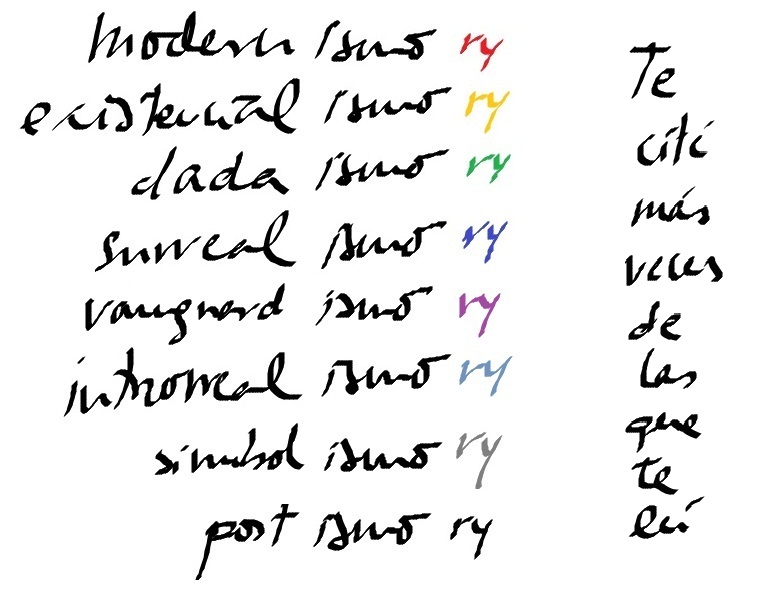 modern ismo ry
existencial ismo ry
dada ismo ry
surreal ismo ry
vanguard ismo ry
introrreal ismo ry
simbol ismo ry
post ismo ry
Te
cité
más
veces
de
las
que
te
leí